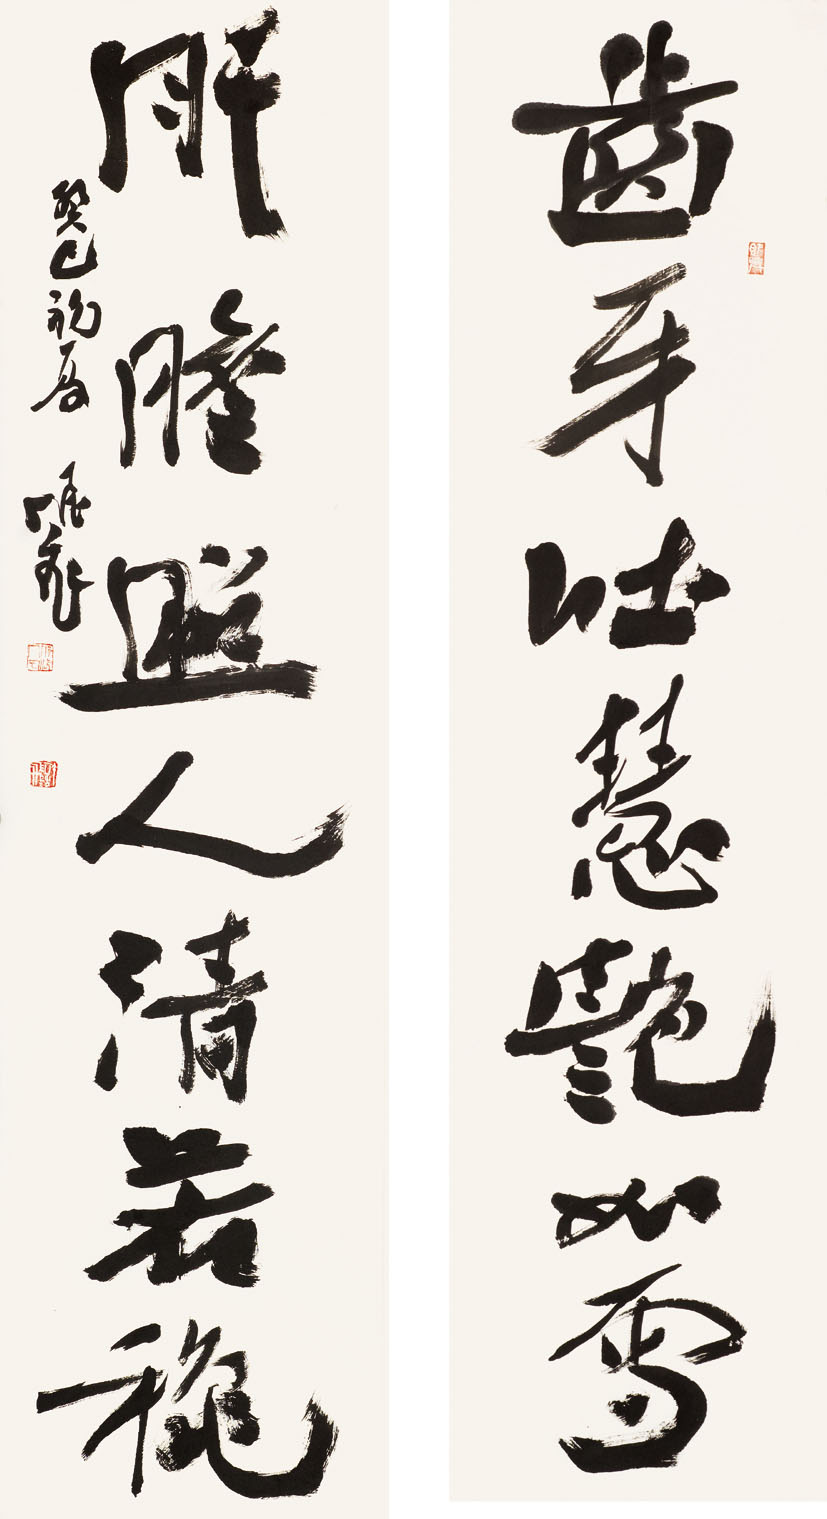 齒牙吐慧艷如雪
肝膽照人清若穐
癸巳初夏